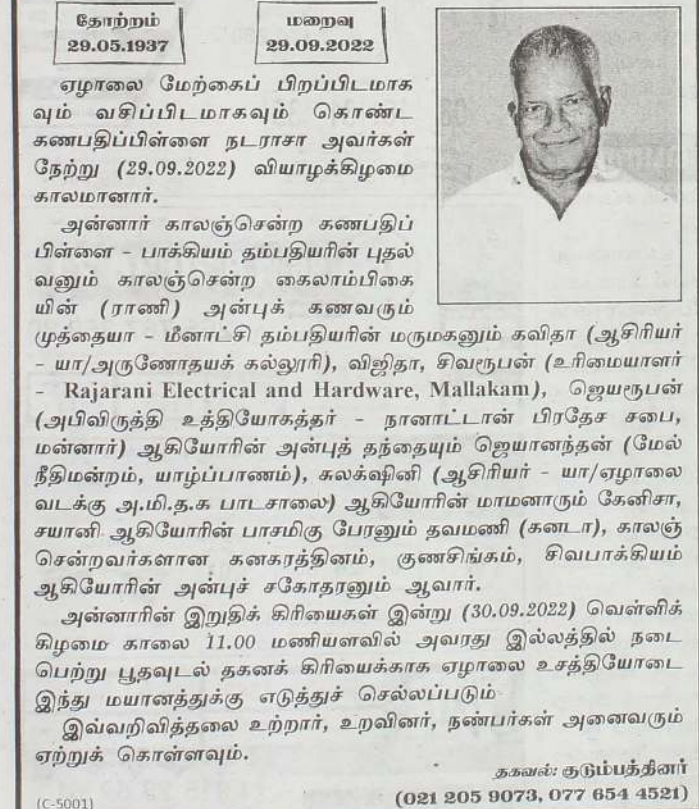 தோற்றம்
29.05.1937
மறைவு
29.09.2022
ஏழாலை மேற்கைப் பிறப்பிடமாக
வும் வசிப்பிடமாகவும் கொண்ட
கணபதிப்பிள்ளை நடராசா அவர்கள்
நேற்று (29.09.2022) வியாழக்கிழமை
காலமானார்.
அன்னார் காலஞ்சென்ற கணபதிப்
பிள்ளை - பாக்கியம் தம்பதியரின் புதல்
வனும் காலஞ்சென்ற கைலாம்பிகை
யின் (ராணி) அன்புக் கணவரும்
முத்தையா - மீனாட்சி தம்பதியரின் மருமகனும் கவிதா (ஆசிரியர்
- யா/அருணோதயக் கல்லூரி), விஜிதா, சிவரூபன் (உரிமையாளர்
- Rajarani Electrical and Hardware, Mallakam), ஜெயரூபன்
(அபிவிருத்தி உத்தியோகத்தர் - நானாட்டான் பிரதேச சபை,
மன்னார்) ஆகியோரின் அன்புத் தந்தையும் ஜெயானந்தன் (மேல்
நீதிமன்றம், யாழ்ப்பாணம்), சுலக்ஷினி (ஆசிரியர் - யா/ஏழாலை
வடக்கு அ.மி.த.க பாடசாலை) ஆகியோரின் மாமனாரும் கேனிசா,
சயானி ஆகியோரின் பாசமிகு பேரனும் தவமணி (கனடா), காலஞ்
சென்றவர்களான கனகரத்தினம், குணசிங்கம், சிவபாக்கியம்
ஆகியோரின் அன்புச் சகோதரனும் ஆவார்.
அன்னாரின் இறுதிக் கிரியைகள் இன்று (30.09.2022) வெள்ளிக்
கிழமை காலை 11.00 மணியளவில் அவரது இல்லத்தில் நடை
பெற்று பூதவுடல் தகனக் கிரியைக்காக ஏழாலை உசத்தியோடை
இந்து மயானத்துக்கு எடுத்துச் செல்லப்படும்
இவ்வறிவித்தலை உற்றார், உறவினர், நண்பர்கள் அனைவரும்
ஏற்றுக் கொள்ளவும்.
தகவல்: குடும்பத்தினர்
(C-5001)
(021 205 9073, 077 654 4521)